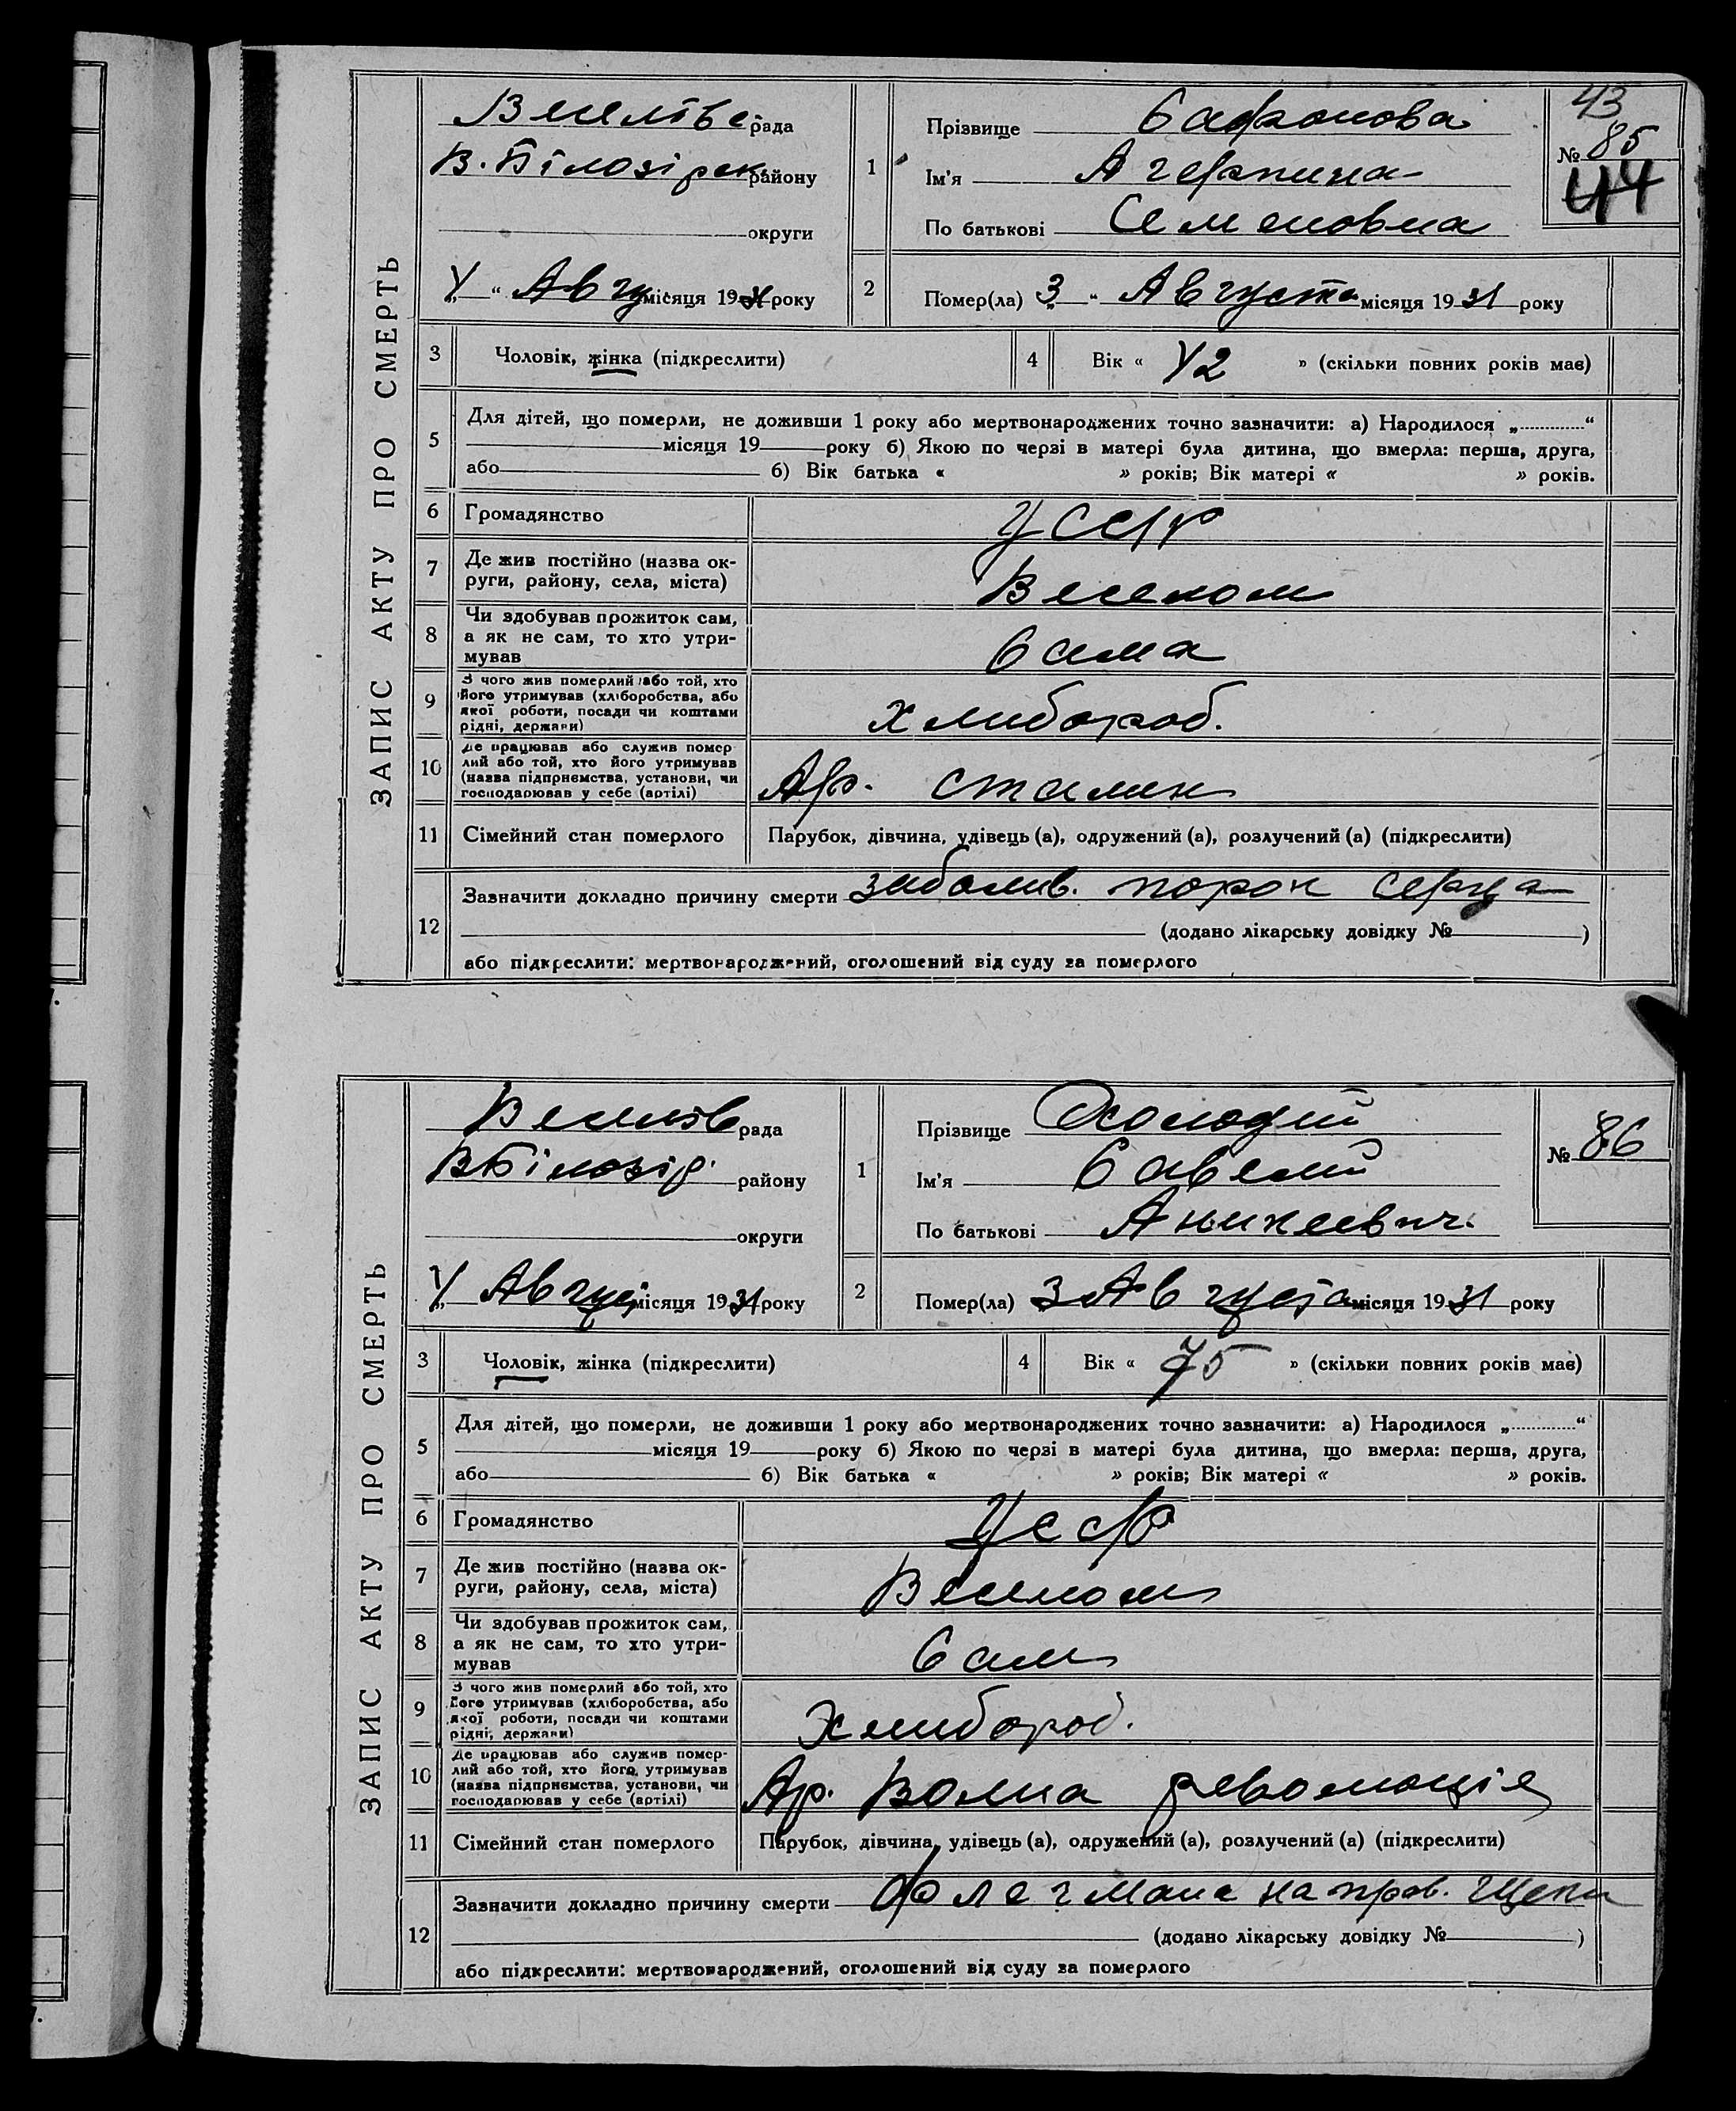 ЗАПИС АКТУ ПРО СМЕРТЬ
Веселівс рада
В. Білозірск. району
округи
„4 “ Авгу місяця 1931 року
1 Прізвище Сафонова
Ім'я
По батькові Семеновна
43
№ 85
44
2 Помер(ла) „3 “ Августа місяця 1931 року
3 Чоловік, жінка (підкреслити)
4 Вік « 42 » (скільки повних років має)
5 Для дітей, що померли, не доживши 1 року або мертвонароджених точно зазначити: а) Народилося „ “
місяця 19 року б) Якою по черзі в матері була дитина, що вмерла: перша, друга,
або б) Вік батька « » років; Вік матері « » років.
6 Громадянство УССР
7 Де жив постійно (назва ок-
руги, району, села, міста) Веселом
8 Чи здобував прожиток сам,
а як не сам, то хто утри-
мував Сама
9 З чого жив померлий або той, хто
його утримував (хліборобства, або
якої роботи, посади чи коштами
рідні, держави) Хлибороб.
10 Де працював або служив помер-
лий або той, хто його утримував
(назва підприємства, установи, чи
господарював у себе (артілі) Ар. Сталин
11 Сімейний стан померлого Парубок, дівчина, удівець (а), одружений (а), розлучений (а) (підкреслити)
12 Зазначити докладно причину смерти заболив. порок серца
(додано лікарську довідку № )
або підкреслити: мертвонароджений, оголошений від суду за померлого
ЗАПИС АКТУ ПРО СМЕРТЬ
Веселів рада
В Білозір. району
округи
„4 Август місяця 1931 року
1 Прізвище Холодий
Ім'я Савелий
По батькові Аникеевич.
№ 86
2 Помер(ла) 3 Августа місяця 1931 року
3 Чоловік, жінка (підкреслити)
4 Вік « 75 » (скільки повних років має)
5 Для дітей, що померли, не доживши 1 року або мертвонароджених точно зазначити: а) Народилося „ “
місяця 19 року б) Якою по черзі в матері була дитина, що вмерла: перша, друга,
або б) Вік батька « » років; Вік матері « » років.
6 Громадянство УССР
7 Де жив постійно (назва ок-
руги, району, села, міста) Веселом
8 Чи здобував прожиток сам,
а як не сам, то хто утри-
мував Сам
9 З чого жив померлий або той, хто
його утримував (хліборобства, або
якої роботи, посади чи коштами
рідні, держави) Хлибороб.
10 Де працював або служив помер-
лий або той, хто його утримував
(назва підприємства, установи, чи
господарював у себе (артілі) Ар. Волна революціе
11 Сімейний стан померлого Парубок, дівчина, удівець (а), одружений (а), розлучений (а) (підкреслити)
12 Зазначити докладно причину смерти на прав. щеки
(додано лікарську довідку № )
або підкреслити: мертвонароджений, оголошений від суду за померлого